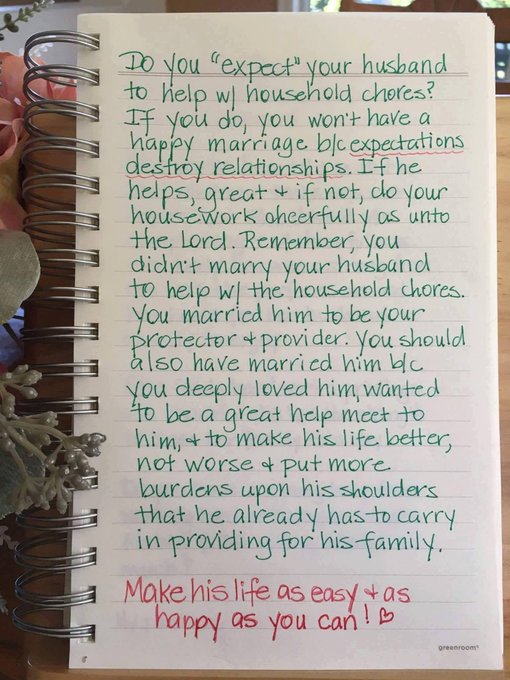 Do you "expect" your husband
to help w/ household chores?
If you do, you won't have a
happy marriage b/c expectations
destroy relationships. If he
helps, great & if not, do your
housework cheerfully as unto
the Lord. Remember, you
didn't marry your husband
to help w/ the household chores.
You married him to be your
protector & provider. You should
also have married him b/c
you deeply loved him, wanted
to be a great help meet to
him, & to make his life better,
not worse & put more
burdens upon his shoulders
that he already has to carry
in providing for his family.
Make his life as easy & as
happy as you can! ♡
greenroom®